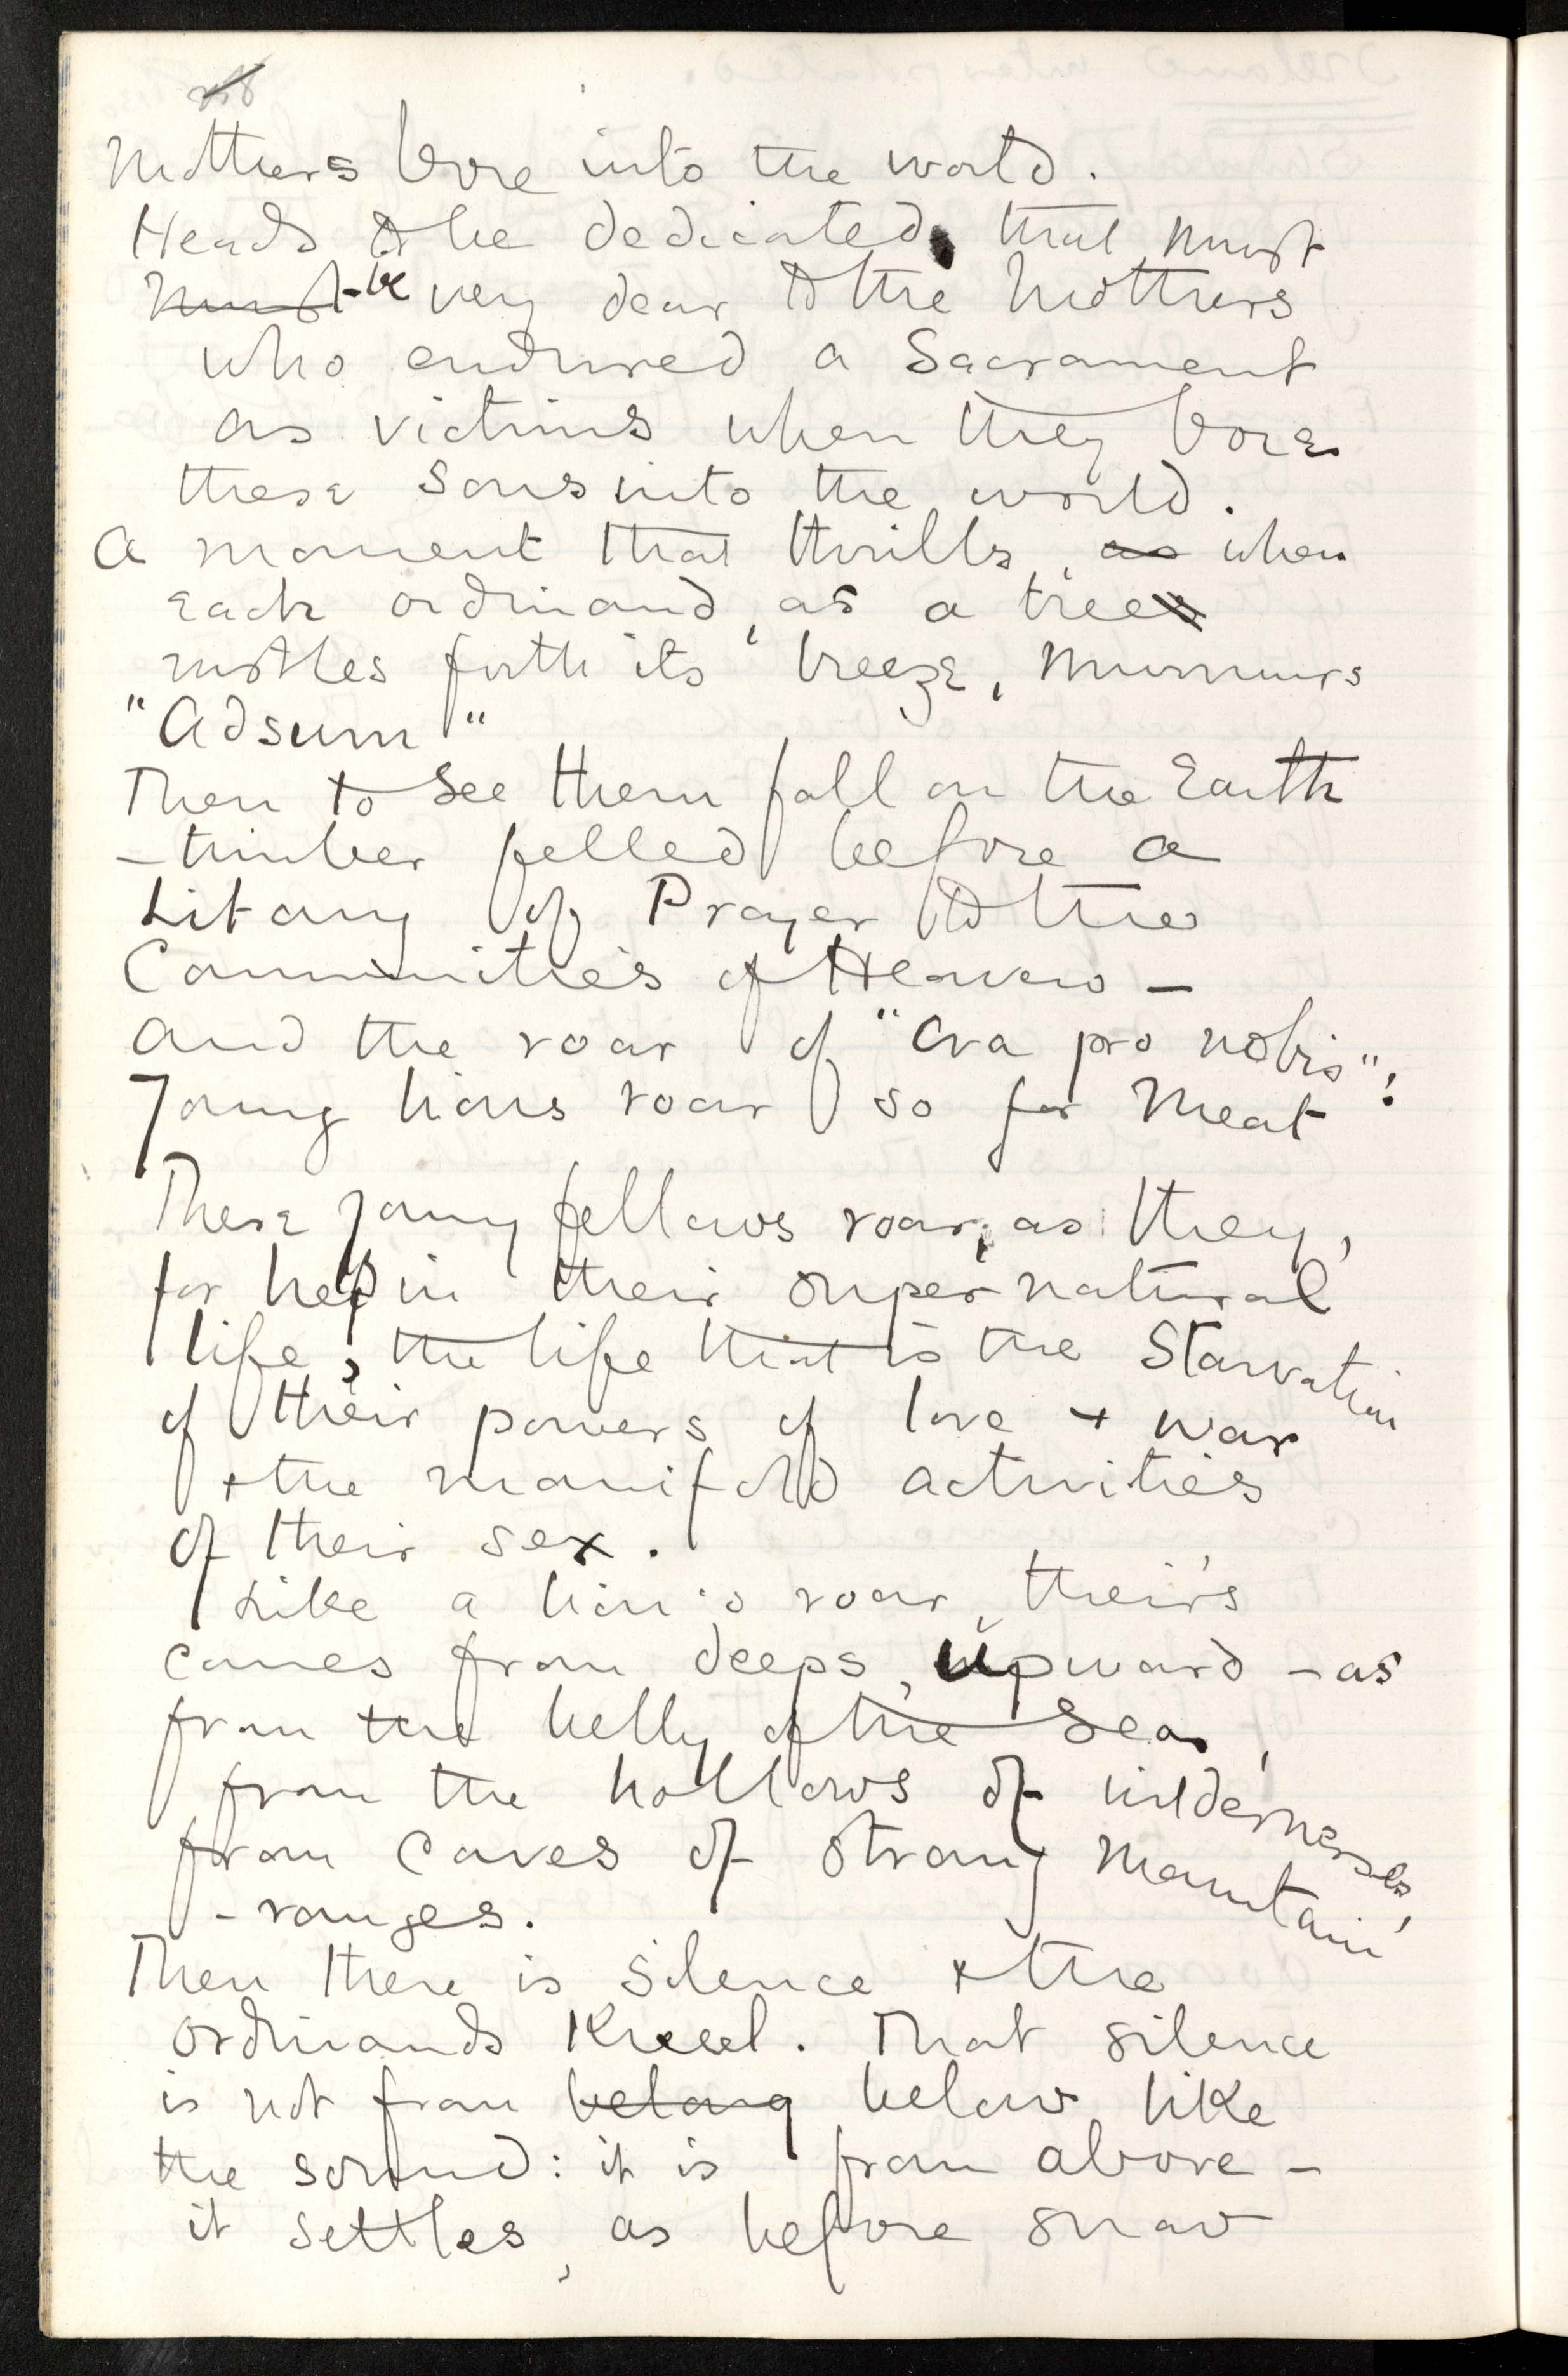 Mothers bore into the world.
Heads to be dedicated that must
must be very dear to the Mothers
who endured a Sacrament
as victims when they bore
these sons into the world.
A moment that thrills, as when
each ordinand, as a trees
rustles forth its breeze, murmurs
"Adsum"
Then to see them fall on the Earth
- timber felled before a
Litany of Prayer to the
Communities of Heaven -
and the roar of "Ora pro nobis"!
Young lions roar so for Meat
These young fellows roar, as they,
for help in their supernatural
life, the life that is the Starvation
of their powers of love + war
+ the manifold activities
of their sex.
Like a lion's roar, their's
comes from deeps, upward - as
from the belly of the Sea,
from the hollows of wildernesses,
from caves of strong Mountain
- ranges.
Then there is silence + the
ordinands Kneel. That silence
is not from belong below like
the sound: it is from above -
it settles, as before snow